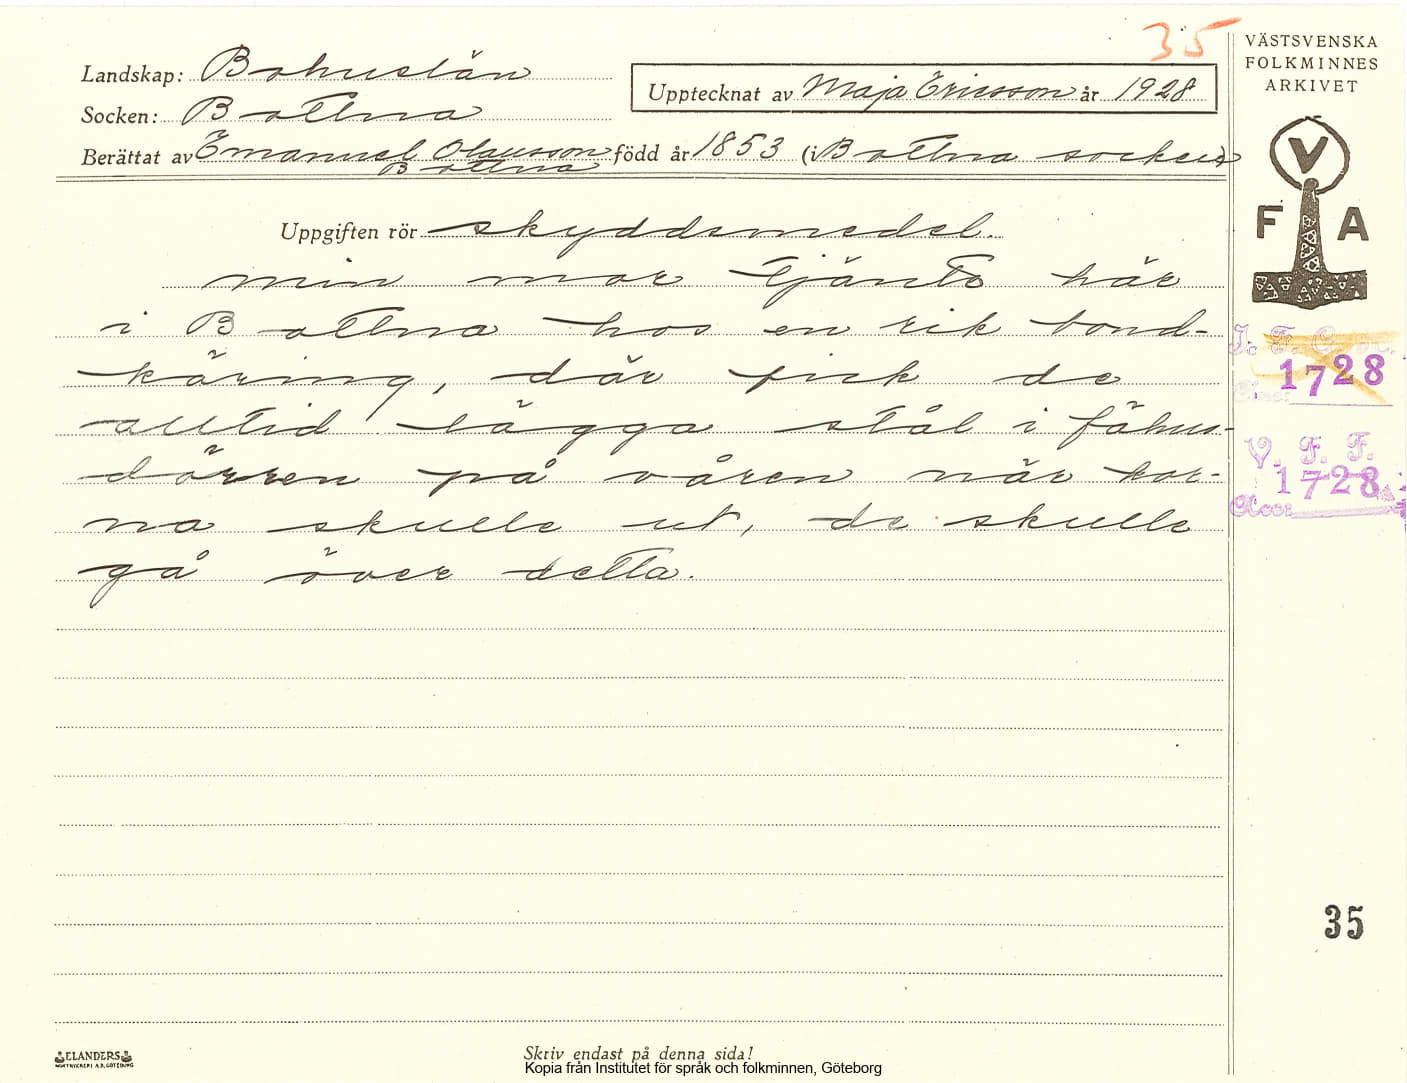 35
VÄSTSVENSKA
FOLKMINNES
ARKIVET
Landskap: Bohuslän
Upptecknat av Maja Ericsson år 1928
Socken: Bottna
Berättat av Emanuel Olausson född år 1853 (i Bottna socken)
Bottna
V
F A
Uppgiften rör skyddsmedel.
min mor tjänte här
i Bottna hos en rik bond-
käring, där fick de
alltid lägga stål i fähus-
dörren på våren när kor-
na skulle ut, de skulle
gå över detta.
1728
V. F. F.
1728
35
ELANDERS
Skriv endast på denna sida!
Kopia från Institutet för språk och folkminnen, Göteborg